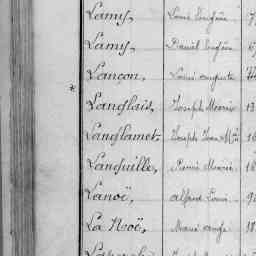 Lamy, Louis Eugène
Lamy, Daniel Eugène
Lançon, Louis Auguste
* Langlais, Joseph Marie 13
Langlamet, Joseph Jean M 16
Languille, Pierre Marie 16
Lanoë, Alfred Louis
La Noë, Marie Ange 18